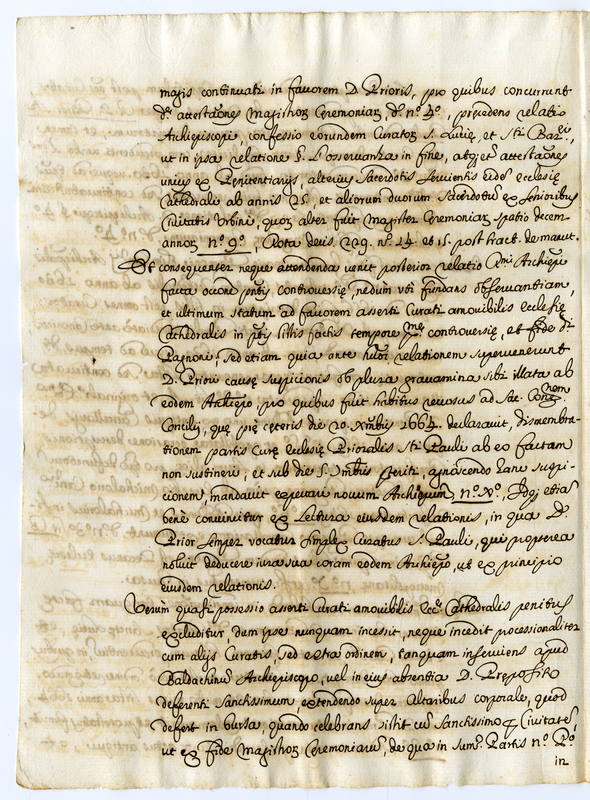 magis continuati in favorem D. Prioris, pro quibus concurrunt
dę attestãones Magistroꝝ Ceremoniaꝝ, dº nº 4º, prẹcedens relatio
Archiepiscopi, confessio eorundem Curatoꝝ S. Lucię, et Sti Barei,
ut in ipsa relatione §. L'osservanza in fine, attestãones
unius ex Penitentiarijs, alterius Sacerdotis servientis eidẽ ecclesię
Cathedrali ab annis 25, et aliorum duorum Sacerdotũ ex senioribus
Civitatis Urbini, quoꝝ alter fuit Magister Ceremoniaꝝ spatio decem
annoꝝ nº 9º, Rota decis. 229. nº 14. et 15. post tract. de manut.
Et consequenter neque attendenda venit posterior relatio Archiepi
facta occone pñtis controversię, nedum uti fundans observantiam,
et ultimum statum ad favorem asserti Curati amovibilis ecclesię
Cathedralis in litis factis tempore controversię, et fide dⁱ
Pagnoni, sed etiam quia ante relationem supervenerunt
D. Priori causę suspicionis ob plura gravamina sibi illata ab
eodem Archiepo pro quibus fuit habitus recursus ad Sac. Congnem
Concilij, quę prę cęteris die 20. Xmbris 1664. declaravit, dismembra-
tionem partis Curę ecclesię Prioralis Sti Pauli ab eo factam
non sustineri, et sub die agnoscendo hanc suspi-
cionem, mandavit novum Archiepum nº Xº, etiã
benè convincitur ex Lectura eiusdem relationis, in qua D.
Prior semper vocatur simplex Curatus S. Pauli, qui propterea
noluit deducere iura sua coram eodem Archiepo, ut ex principio
eiusdem relationis.
Verùm quasi possessio asserti Curati amovibilis Eccę Cathedralis penitus
excluditur, dum ipse nunquam incessit, neque incedit processionaliter
cum alijs Curatis, sed extra ordinem, tanquam inserviens apud
Baldachinũ Archiepiscopo, vel in eius absentia D. Preposito
deferenti Sanctissimum extendendo super Altaribus corporale, quod
defert in bursa, quando celebrans sistit cũ Sanctissimo ꝑ Civitatẽ,
ut ex Fide Magistroꝝ Ceremoniarũ, de qua in Sumº Partis nº Pº
in